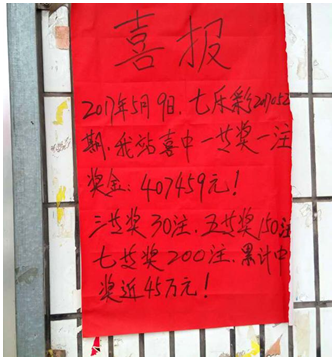 喜报
2017年5月9日.七乐彩2017052
期.我站喜中一等奖一注
奖金:407459元!
三等奖30注.五等奖150注
七等奖200注.累计中
奖近45万元!